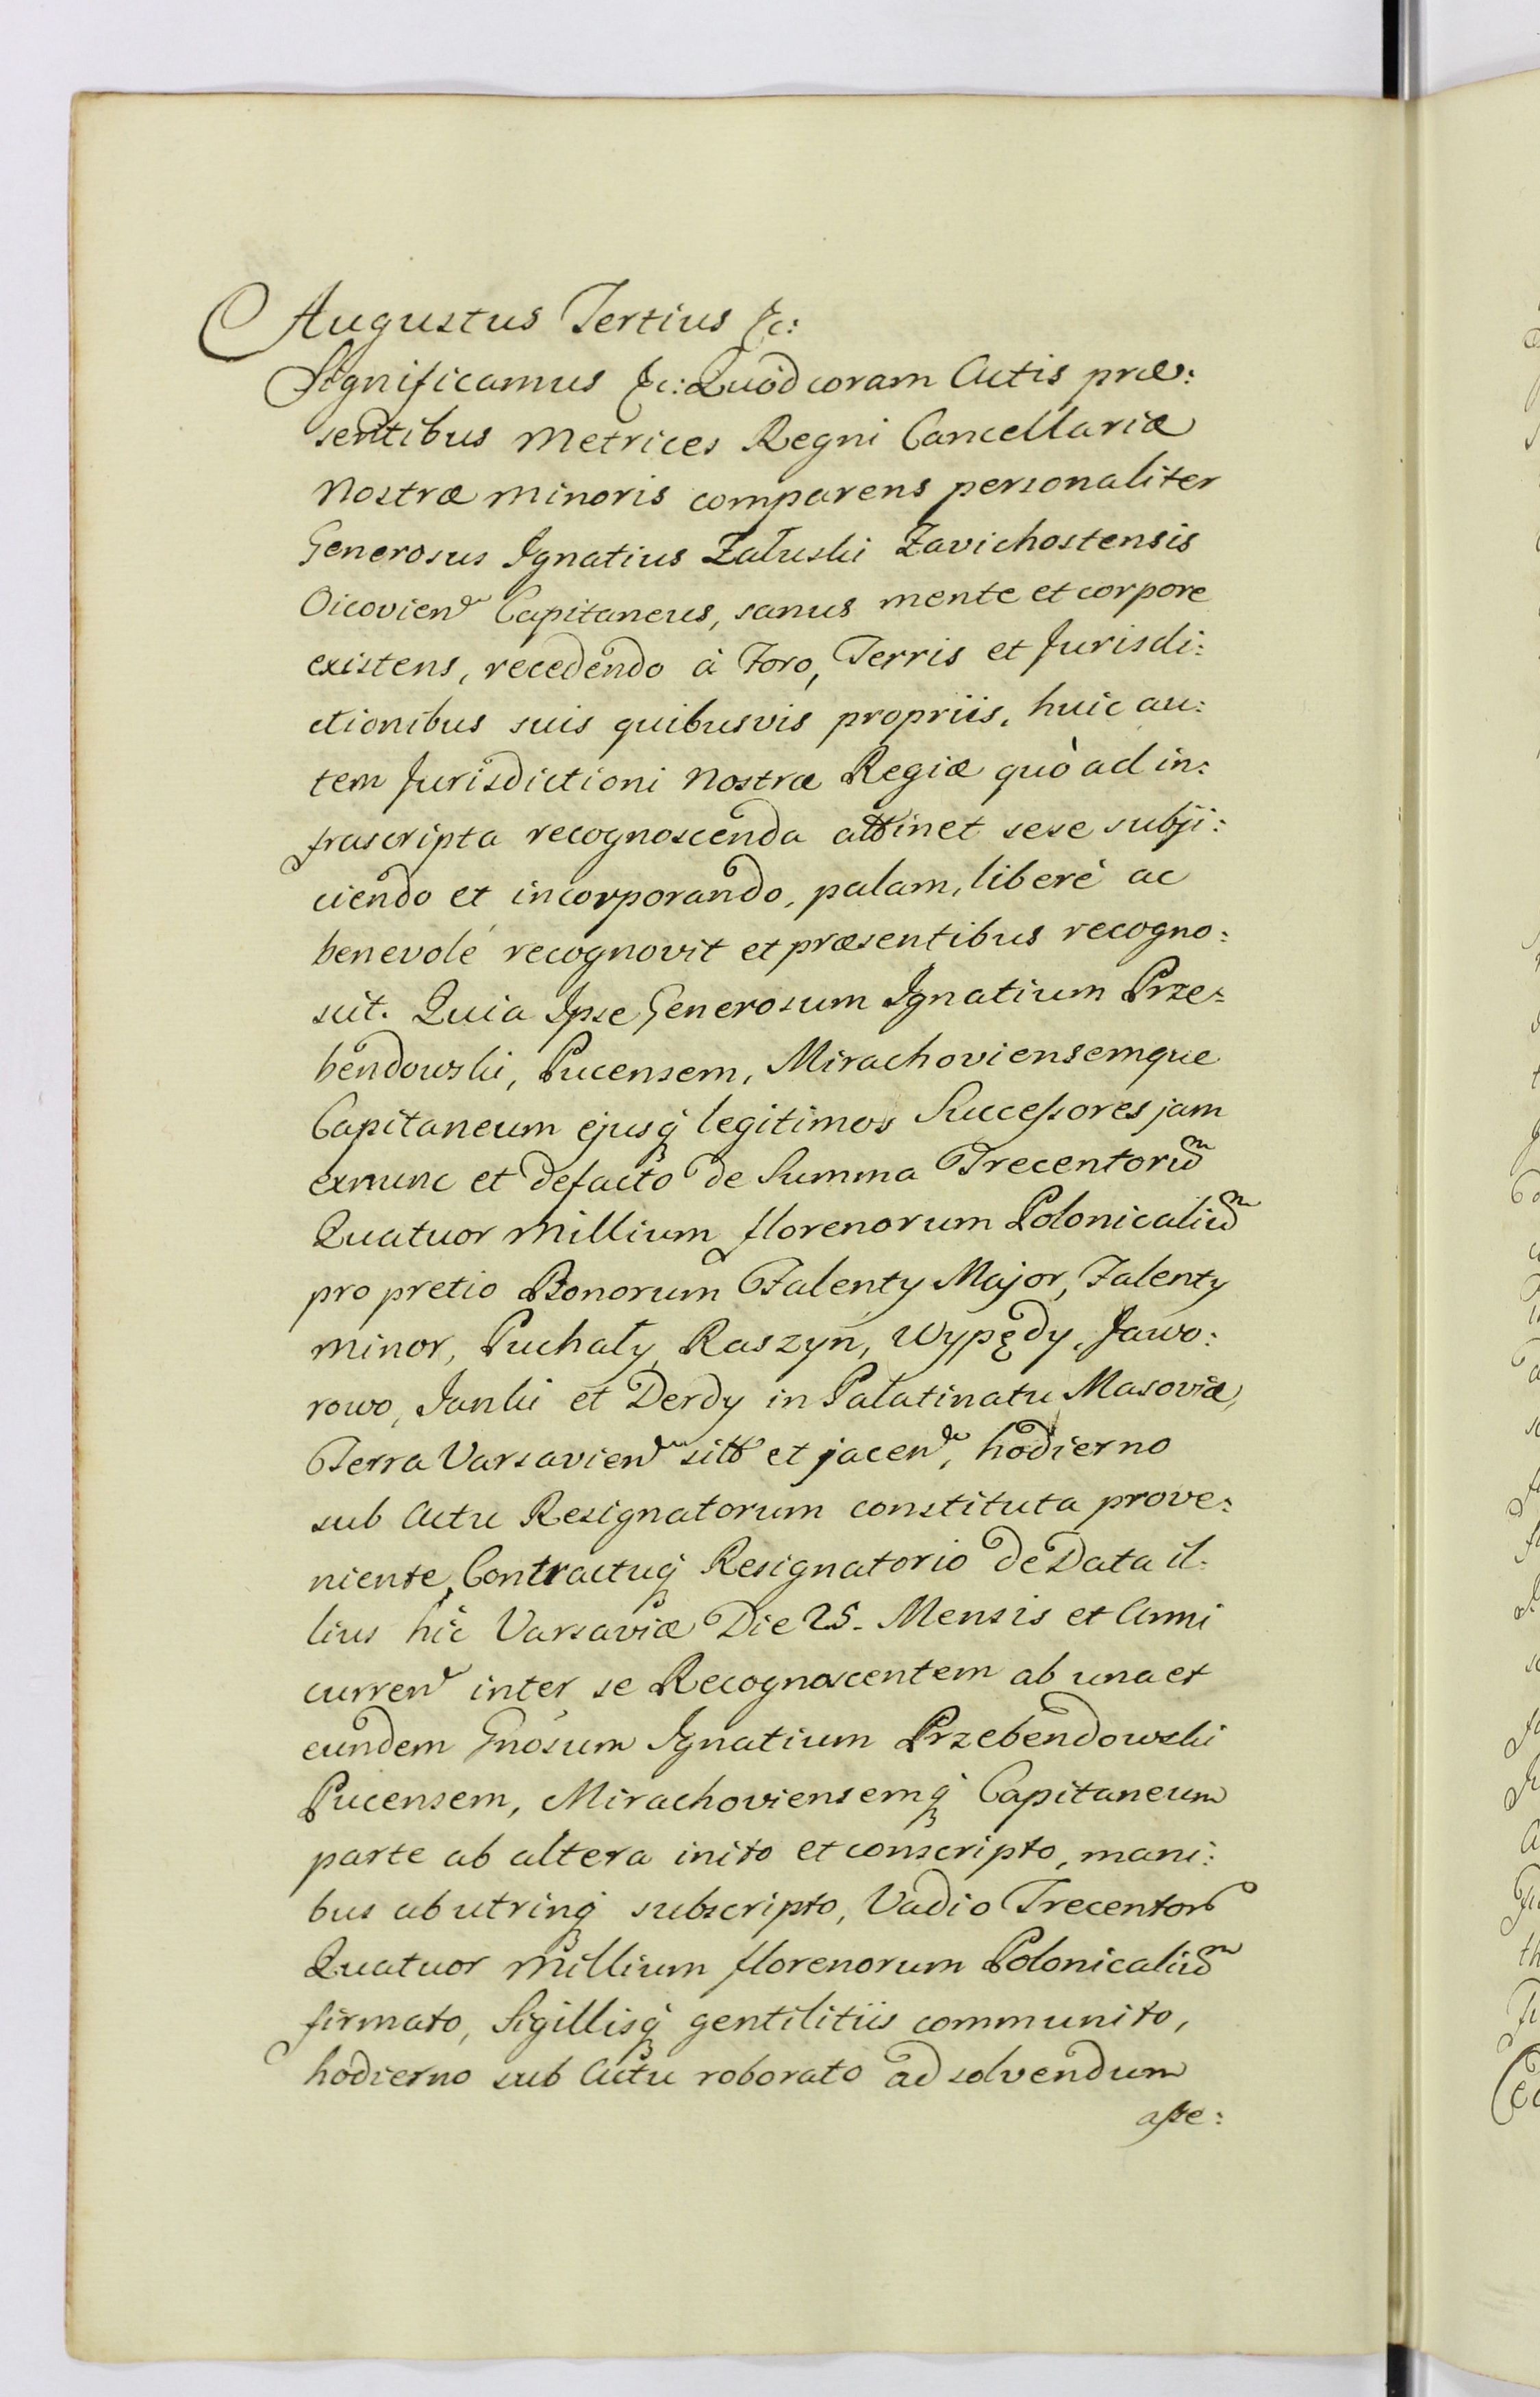 Augustus Tertius &c:
Significamus &c: Quòd coram Actis præ:
sentibus Metrices Regni Cancellariæ
Nostræ minoris comparens personaliter
Generosus Ignatius Załuski Zavichostensis
Oicovien Capitaneus, sanus mente et corpore
existens, recedendo à Foro, Terris et Jurisdi:
ctionibus suis quibusvis propriis, huic au:
tem Jurisdictioni Nostræ Regiæ quò ad in:
frascripta recognoscenda attinet sese subji:
ciendo et incorporando, palam, liberè ac
benevolè recognovit et præsentibus recogno:
scit. Quia Ipse Generosum Ignatium Prze:
bendowski, Pucensem, Mirachoviensemque
Capitaneum ejusq́ legitimos Successores jam
exnunc et defacto de Summa Trecentorum
Quatuor Millium florenorum Polonicalium
pro pretio Bonorum Falenty Major, Falenty
minor, Puchały, Raszyn, Wypędy, Jawo:
rowo, Janki et Derdy in Palatinatu Masoviæ,
Terra Varsavien sitt et jacen, hodierno
sub Actu Resignatorum constituta prove:
niente, Contractuq́ Resignatorio de Data il:
lius hic Varsaviæ Die 25. Mensis et Anni
curren inter se Recognoscentem ab una et
eundem Gnosum Ignatium Przebendowski
Pucensem, Mirachoviensemq́ Capitaneum
parte ab altera inito et conscripto, mani:
bus ab utrinq́ subscripto, Vadio Trecentor
Quatuor Millium florenorum Polonicalium
firmato, Sigillisq́ gentilitiis communito,
hodierno sub Actu roborato ad solvendum
asse: